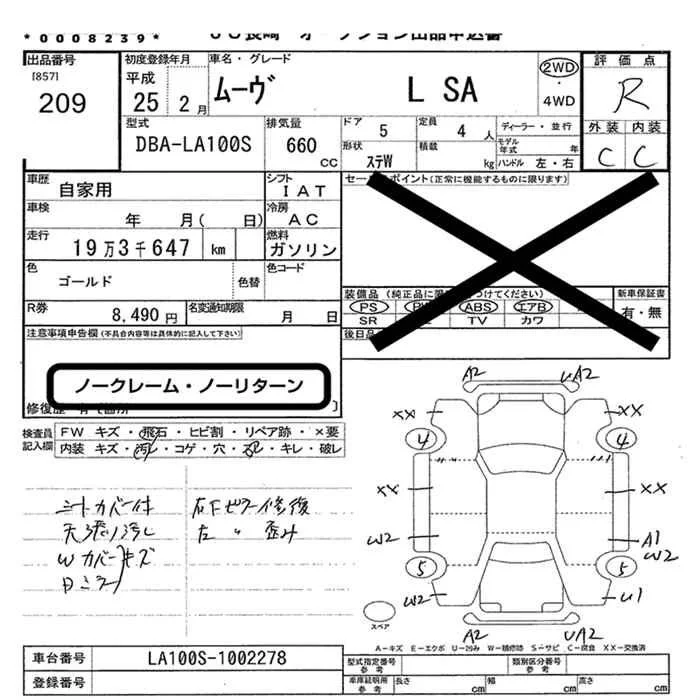 *0008239*
ション出品申込書
出品番号
[857]
209
初度登録年月
平成
25 2月
車名・グレード
ムーヴ L SA
2WD
・
4WD
評価点
R
外装 内装
C C
型式
DBA-LA100S
排気量
660
cc
ドア 5
定員 4人
ディーラー・並行
モデル年式 年
形状 ステW
積載 kg
ハンドル 左・右
車歴
自家用
シフト
IAT
車検
年 月( 日)
冷房
AC
走行
19万3千647 km
燃料
ガソリン
色
ゴールド
色替
色コード
R券
8,490円
名変通知期限
月 日
セー ポイント(正常に機能するものに限ります)
装備品 (純正品に つけてください)
PS ABS エアB
SR TV カワ
新車保証書
有・無
後日品
注意事項申告欄(不具合内容等は具体的に記入して下さい)
ノークレーム・ノーリターン
修復歴
検査員記入欄
FW キズ・飛石・ヒビ割・リペア跡・×要
内装 キズ・汚レ・コゲ・穴・スレ・キレ・破レ
シートカバー付
天張り汚レ
Wカバーキズ
Dミラー
右下ピラー修復
左 〃 歪み
A2 UA2
XX XX
4 4
XX XX
W2 A1
W2
5 5
W2 U1
A2 UA2
スペア
A-キズ E-エクボ U-凹み W-補修跡 S-サビ C-腐食 XX-交換済
車台番号
LA100S-1002278
登録番号
型式指定番号
参考
類別区分番号
参考
車庫証明用
参考
長さ cm
幅 cm
高さ cm